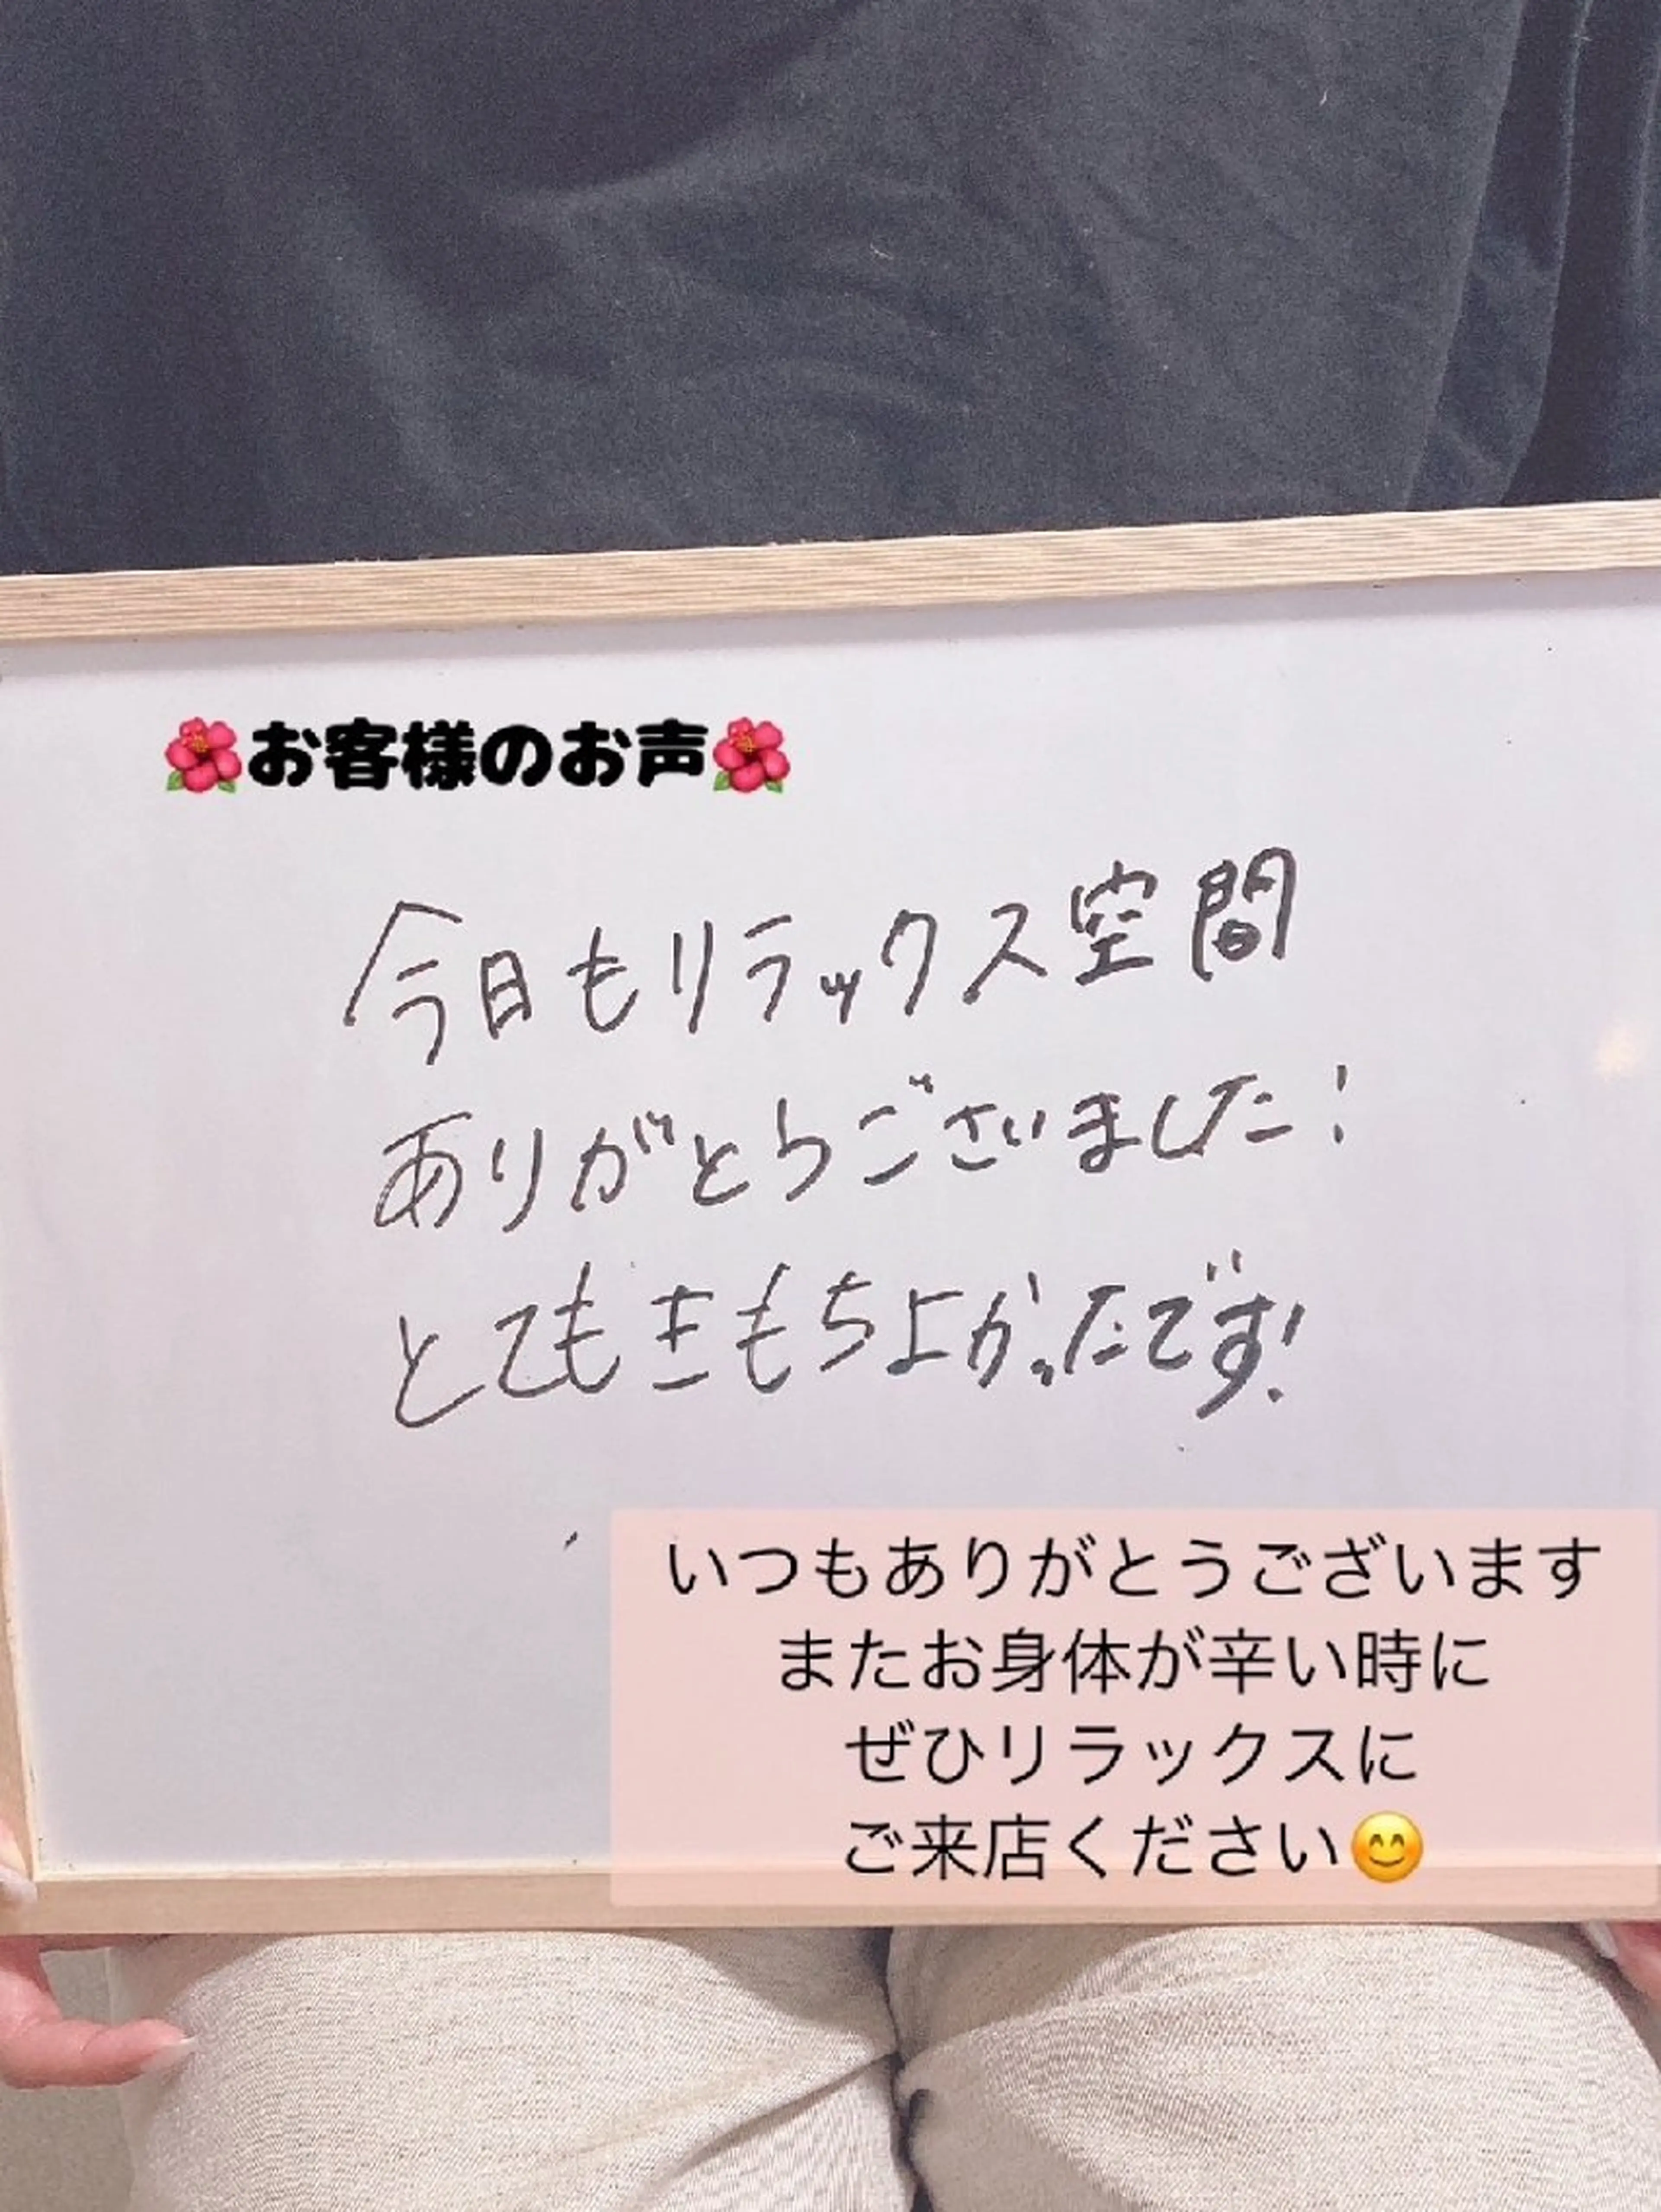 🌺お客様のお声🌺
今日もリラックス空間
ありがとうございました!
とてもきもちよかったです!
いつもありがとうございます
またお身体が辛い時に
ぜひリラックスに
ご来店ください😊